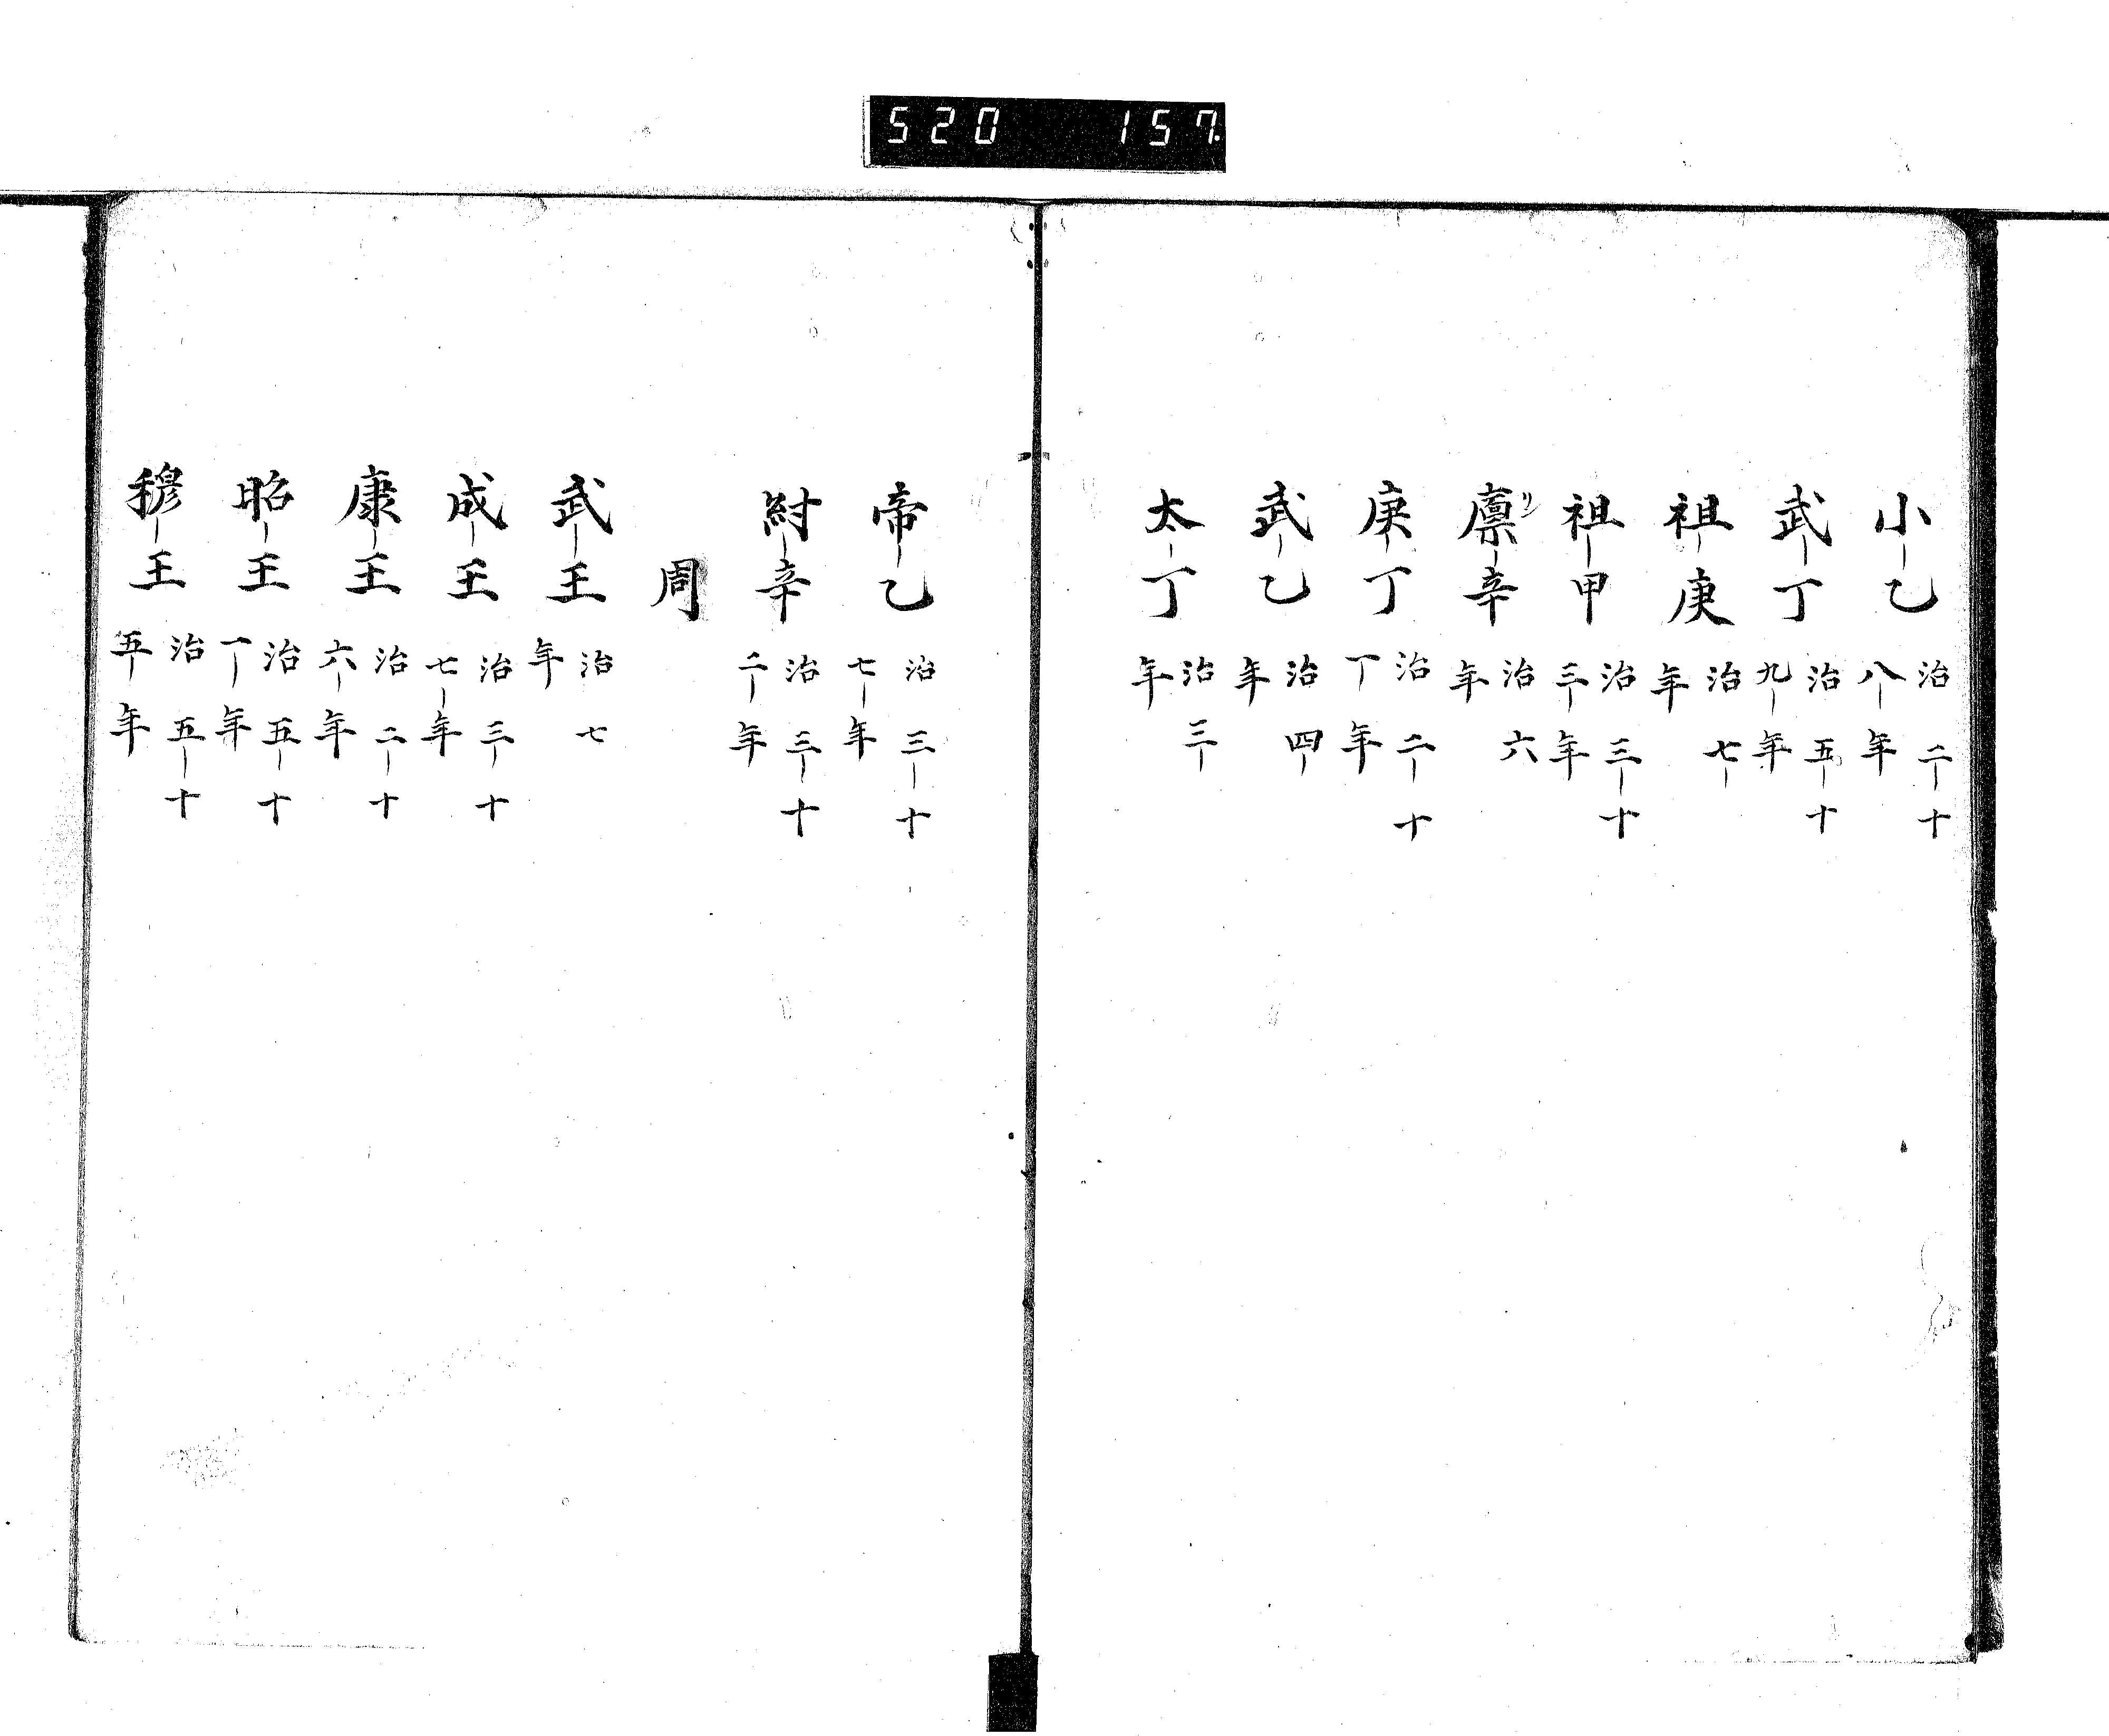 520 157
小乙 治二十八年
武丁 治五十九年
祖庚 治七年
祖甲 治三十三年
廩リン辛 治六年
庚丁 治二十一年
武乙 治四年
太丁 治三年
帝乙 治三十七年
紂辛 治三十二年
周
武王 治七年
成王 治三十七年
康王 治二十六年
昭王 治五十一年
穆王 治五十五年